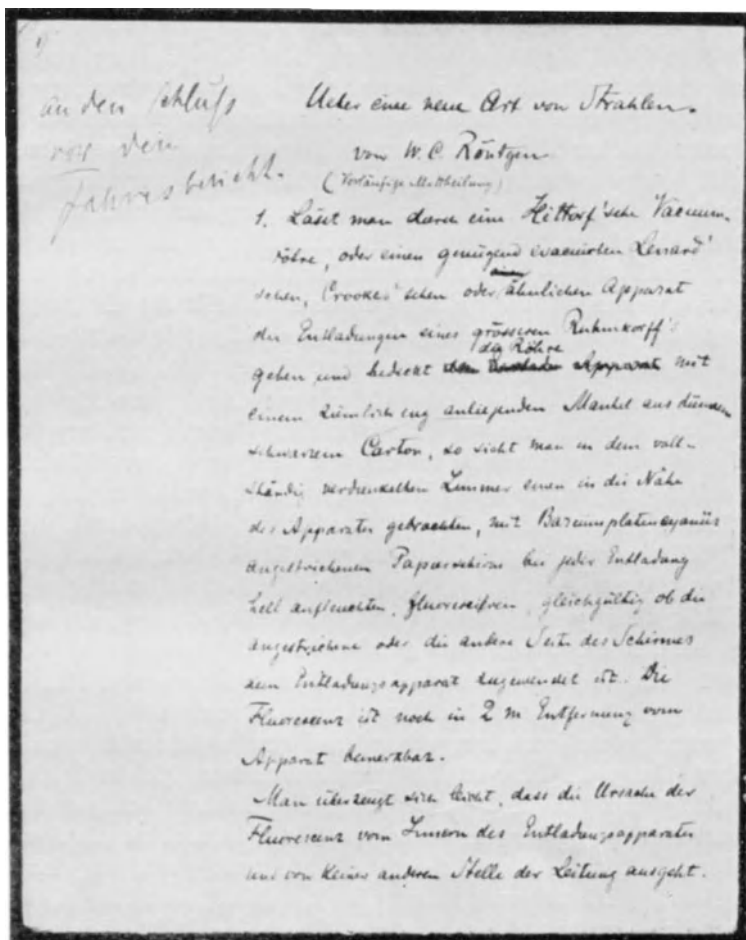 an den Schluss
vor dem
Jahresbericht.
Ueber eine neue Art von Strahlen.
von W. C. Röntgen
(Vorläufige Mittheilung)
1. Lässt man durch eine Hittorf'sche Vacuum-
röhre, oder einen genügend evacuirten Lenard'
schen, Crookes'schen oder ähnlichen Apparat
die Entladungen eines grösseren Ruhmkorff's
gehen und bedeckt die Röhre Apparat mit
einem ziemlich eng anliegenden Mantel aus dünnem
schwarzem Carton, so sieht man in dem voll-
ständig verdunkelten Zimmer einen in die Nähe
des Apparates gebrachten, mit Bariumplatincyanür
angestrichenen Papierschirm bei jeder Entladung
hell aufleuchten, fluoresciren, gleichgültig ob die
angestrichene oder die andere Seite des Schirmes
dem Entladungsapparat zugewendet ist. Die
Fluorescenz ist noch in 2 m Entfernung vom
Apparat bemerkbar.
Man überzeugt sich leicht, dass die Ursache der
Fluorescenz vom Innern des Entladungsapparates
und von keiner anderen Stelle der Leitung ausgeht.